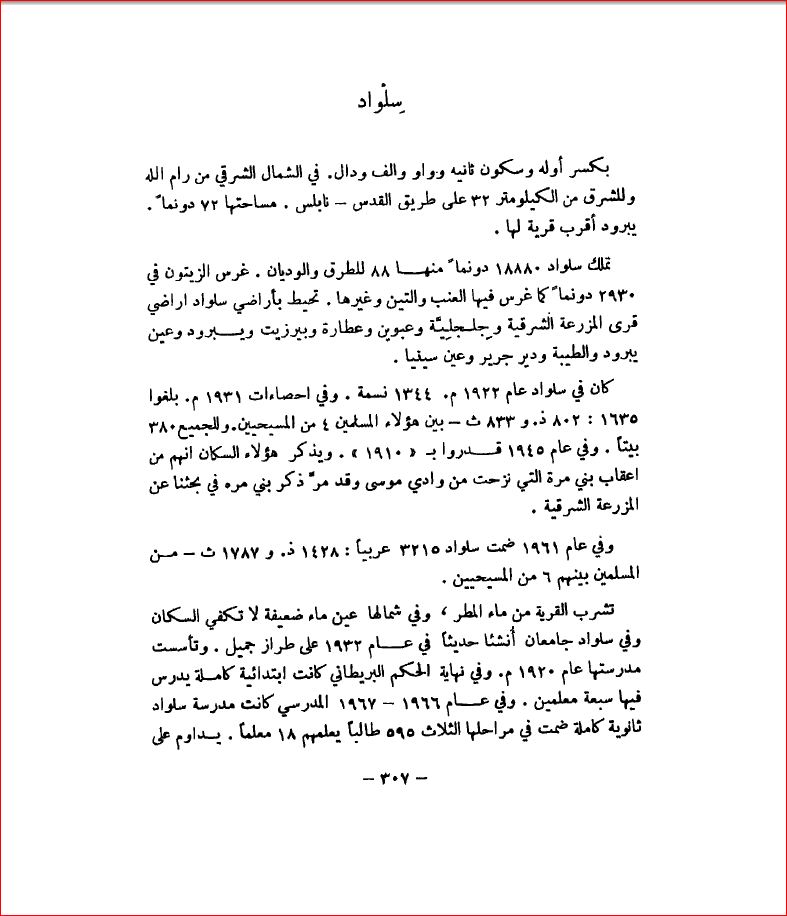 سِلْواد
بكسر أوله وسكون ثانيه وواو والف ودال. في الشمال الشرقي من رام الله
وللشرق من الكيلومتر ٣٢ على طريق القدس – نابلس . مساحتها ٧٢ دونماً .
يبرود أقرب قرية لها .
تملك سلواد ١٨٨٨٠ دونماً منهـــا ٨٨ للطرق والوديان . غرس الزيتون في
٢٩٣٠ دونماً كما غرس فيها العنب والتين وغيرها . تحيط بأراضي سلواد اراضي
قرى المزرعة الشرقية وجِلـجلِيَّة وعبوين وعطارة وبيرزيت ويـــبرود وعين
يبرود والطيبة ودير جرير وعين سينيا .
كان في سلواد عام ١٩٢٢ م. ١٣٤٤ نسمة . وفي احصاءات ١٩٣١ م. بلغوا
١٦٣٥ : ٨٠٢ ذ. و ٨٣٣ ث – بين هؤلاء المسلمين ٤ من المسيحيين. وللجميع ٣٨٠
بيتاً . وفي عام ١٩٤٥ قـــدروا بـ « ١٩١٠ » . ويذكر هؤلاء السكان انهم من
اعقاب بني مرة التي نزحت من وادي موسى وقد مرَّ ذكر بني مره في بحثنا عن
المزرعة الشرقية .
وفي عام ١٩٦١ ضمت سلواد ٣٢١٥ عربياً : ١٤٢٨ ذ. و ١٧٨٧ ث – مـن
المسلمين بينهم ٦ من المسيحيين .
تشرب القرية من ماء المطر ، وفي شمالها عين ماء ضعيفة لا تكفي السكان
وفي سلواد جامعان أُنشئا حديثاً في عـــام ١٩٣٢ على طراز جميل . وتأسست
مدرستها عام ١٩٢٠ م. وفي نهاية الحكم البريطاني كانت ابتدائية كاملـة يدرس
فيها سبعة معلمين . وفي عـــام ١٩٦٦ – ١٩٦٧ المدرسي كانت مدرسة سلواد
ثانوية كاملة ضمت في مراحلها الثلاث ٥٩٥ طالباً يعلمهم ١٨ معلماً . يــداوم على
– ٣٠٧ –